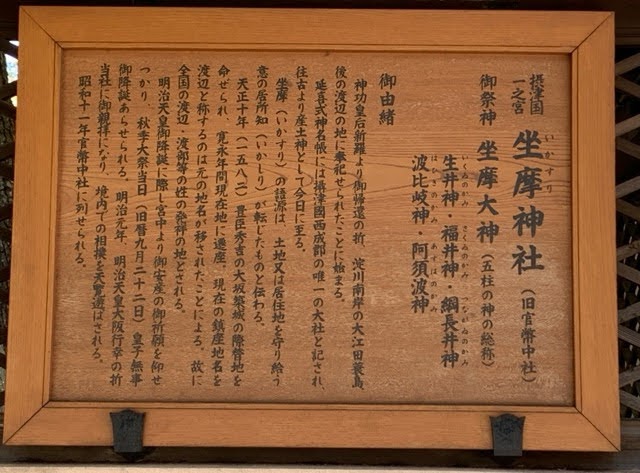 摂津国
一之宮
坐摩神社（旧官幣中社）
いかすり
御祭神 坐摩大神（五柱の神の総称）
いくゐのかみ さくゐのかみ つながゐのかみ
生井神・福井神・綱長井神
はひきのかみ あすはのかみ
波比岐神・阿須波神
御由緒
神功皇后新羅より御帰還の折、淀川南岸の大江田蓑島、
後の渡辺の地に奉祀せられたことに始まる。
延喜式神名帳には摂津國西成郡の唯一の大社と記され、
往古より産土神として今日に至る。
坐摩（いかすり）の語源は、土地又は居住地を守り給う
意の居所知（いかしり）が転じたものと伝わる。
天正十年（一五八二）豊臣秀吉の大坂築城の際替地を
命ぜられ、寛永年間現在地に遷座。現在の鎮座地名を
渡辺と称するのは元の地名が移されたことによる。故に
全国の渡辺・渡部等の姓の発祥の地とされる。
明治天皇御降誕に際し宮中より御安産の御祈願を仰せ
つかり、秋季大祭当日（旧暦九月二十二日）皇子無事
御降誕あらせられる。明治元年、明治天皇大阪行幸の折
当社に御親拝になり、境内での相撲を天覧遊ばされる。
昭和十一年官幣中社に列せられる。